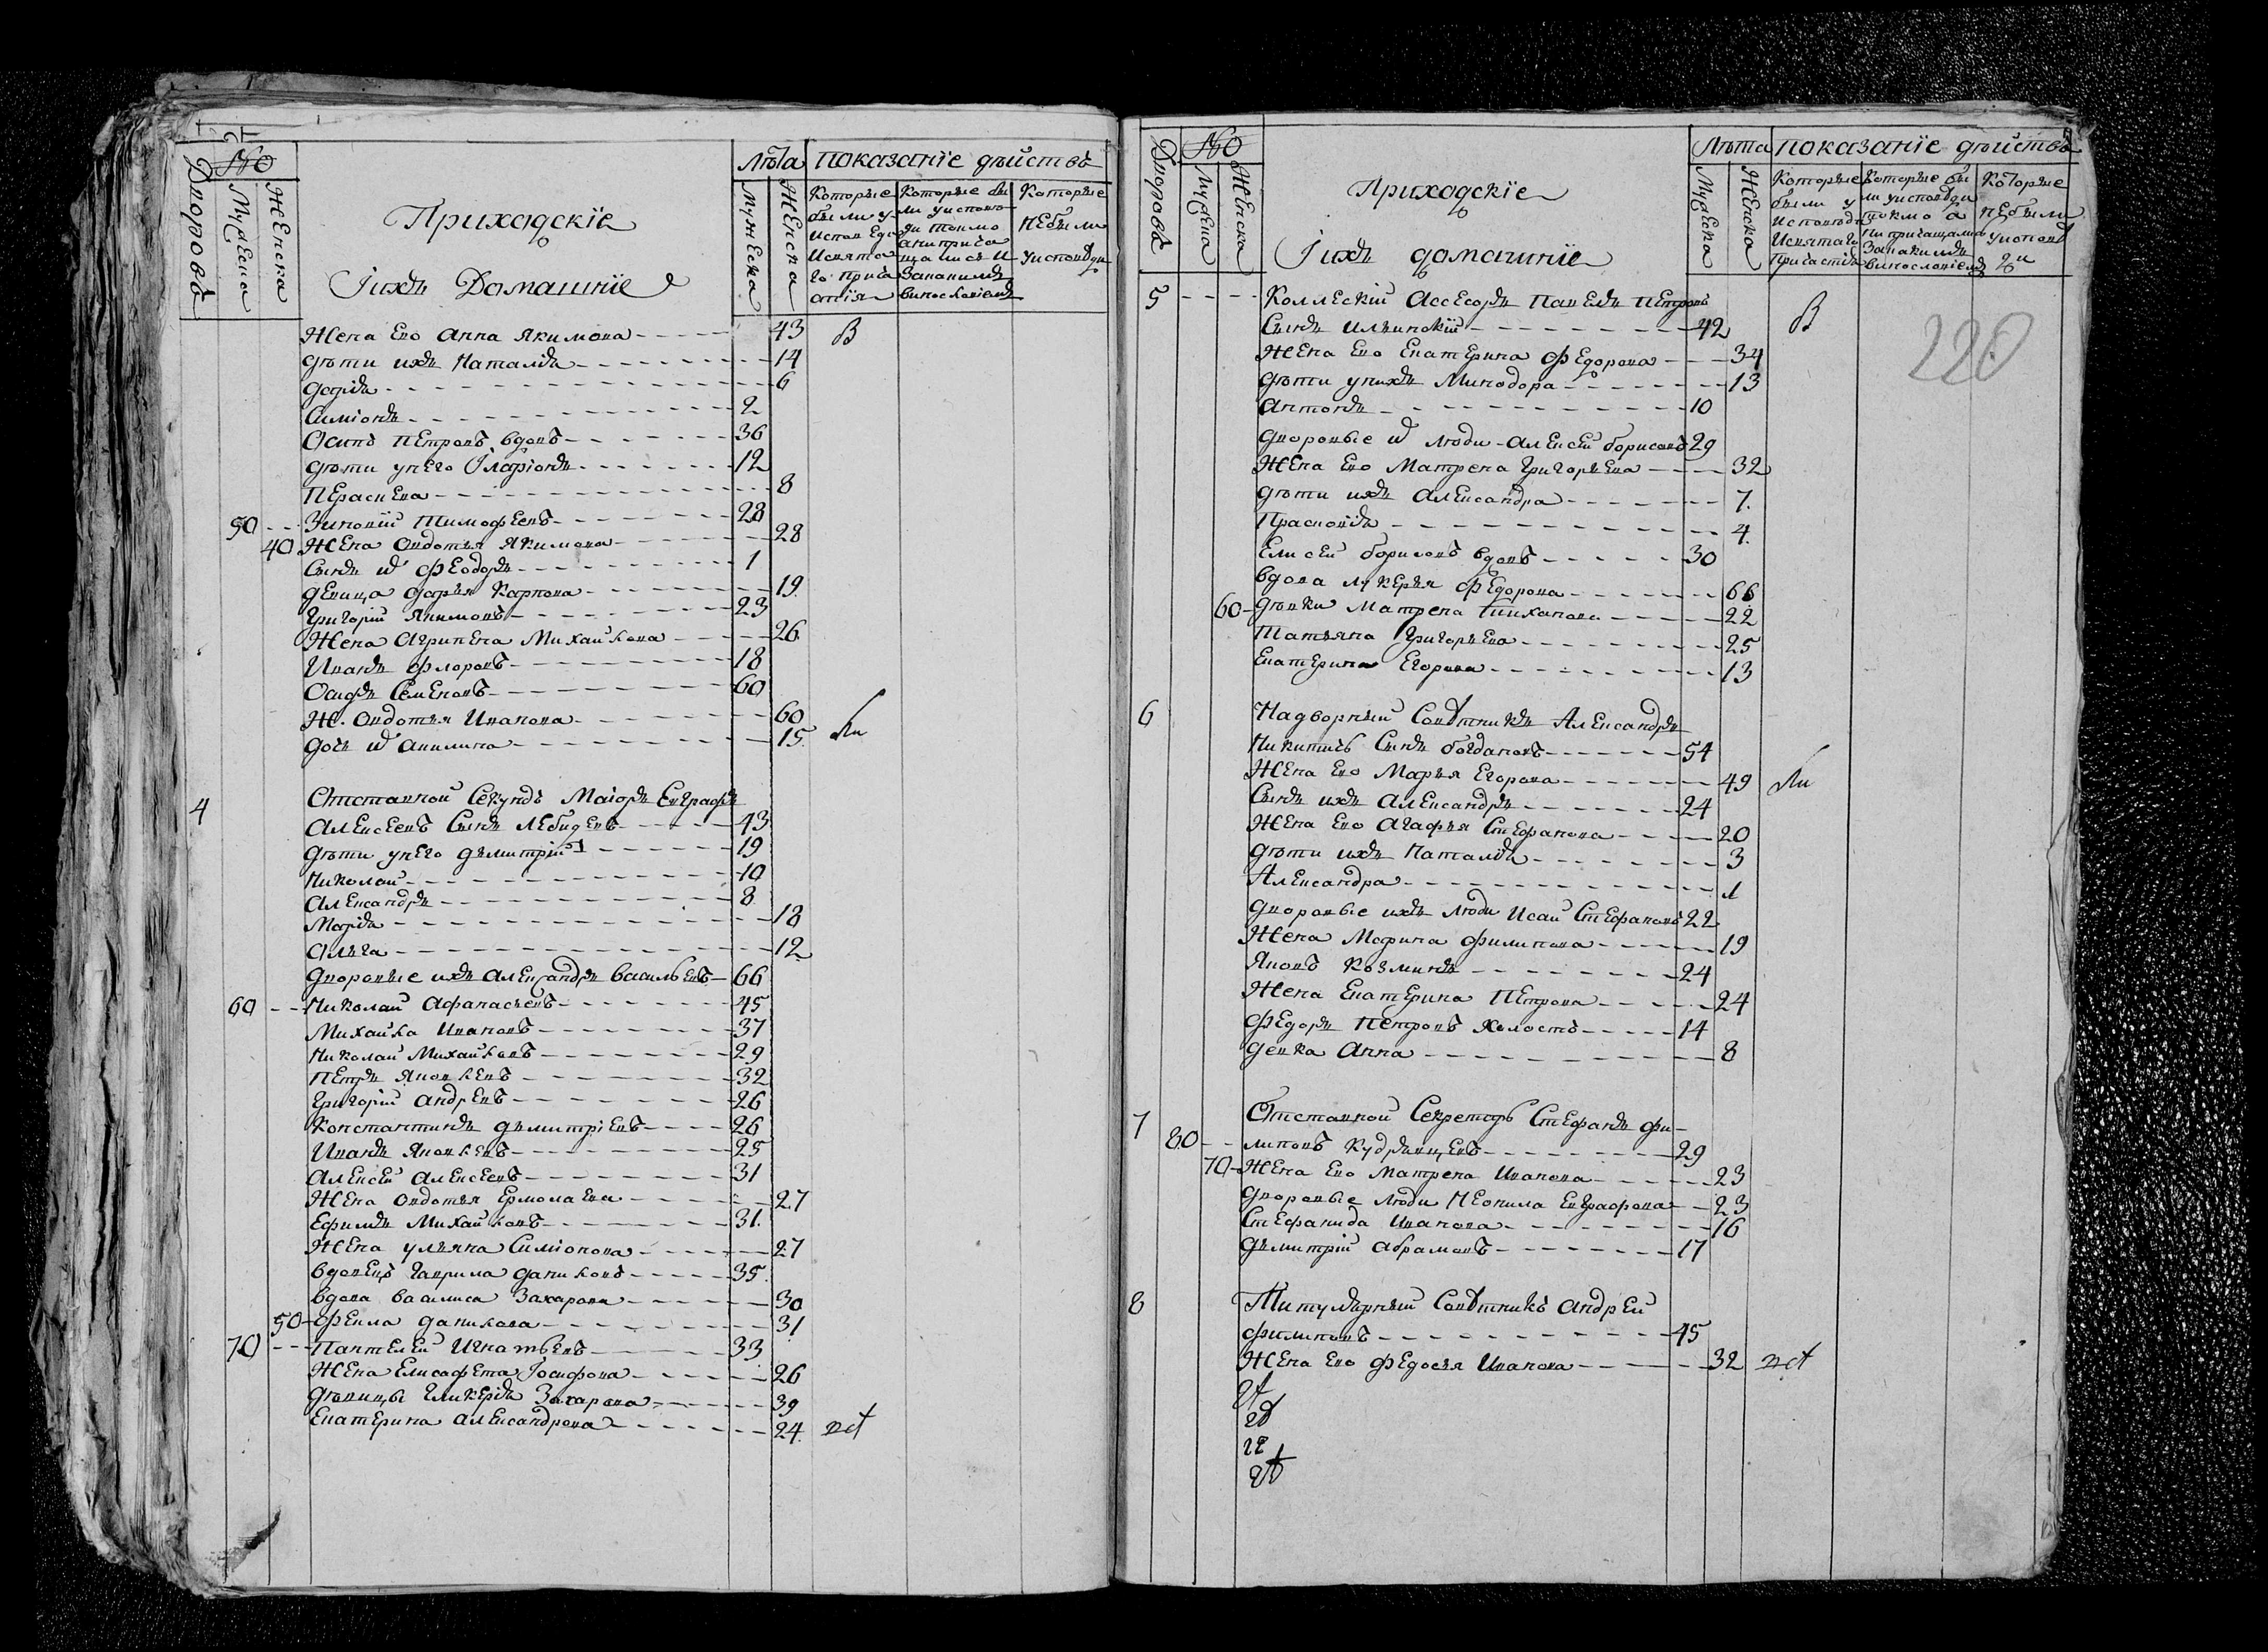 №
Дворовъ
Мужеска
Женска
Приходскїе
Iихъ Домашнїе
Лѣта
Мужеска
Женска
показанїе дѣиствъ
Которые
были у
Испове
Исвята
го прича
стїя
Которые бы
ли уиспове
ди токмо
анеприча
щались и
Заканимъ
винословіемъ
Которые
небыли
уисповѣди
Жена Ево Анна Якимова 43 В
дѣти ихъ Наталїя 14
дарїя 6
Симіонъ 2
Осипъ Петровъ вдовъ 36
дѣти унего Iларіонъ 12
Пераскева 8
50 Зиновїй Тимофеевъ 28
40 Жена Овдотья Якимова 28
Сынъ ѿ Феодоръ 1
девица дарья Карпова 19
Григорїй Якимовъ 23
Жена Агрипена Михайлова 26
Иванъ Флоровъ 18
Осипъ Семеновъ 60
Ж. Овдотья Иванова 60
дочь ѿ Акилина 15 ли
4 Отставной Секундъ Маіоръ Евграфъ
Алексеевъ Сынъ Лебедевъ 43
дѣти унего дьмитрїй 19
Николай 10
Александръ 8
Марїя 18
Ольга 12
дворовые ихъ Александръ васильевъ 66
60 Николай Афанасьевъ 45
Михайла Ивановъ 37
Николай Михайловъ 29
Петръ Яковлевъ 32
Григорїй Андреевъ 26
Константинъ дьмитріевъ 26
Иванъ Яковлевъ 25
Алексей Алексеевъ 31
Жена Овдотья Ермолаева 27
Ефимъ Михайловъ 31
Жена ульяна Симіонова 27
вдовецъ Гаврила даниловъ 35
вдова василиса Захарова 30
50 Фекла данилова 31
70 Пантелей Игнатьевъ 33
Жена Елисафета Iосифова 26
дѣвицы Гликерїя Захарова 39
Екатерина Александрова 24
№
Дворовъ
Мужеска
Женска
Приходскїе
Iихъ домашнїе
Лѣта
Мужеска
Женска
показанїе дѣйствъ
Которые
были у
исповѣди
Исвятаго
Причастїя
Которые бы
ли уисповѣди
токмо а
непричащались
Заканимъ
винословіемъ
Которые
небыли
уисповѣ
ди
220
5 Коллескїй Ассесоръ Павелъ Петровъ
Сынъ Ильинскїй 42 В
Жена Ево Екатерина Федорова 34
дѣти унихъ Минодора 13
Антонъ 10
дворовые ѿ люди Алексей борисовъ 29
Жена Ево Матрена Григорьева 32
дѣти ихъ Александра 7
Прасковїя 4
Елисей борисовъ вдовъ 30
вдова лукерья Федорова 66
60 дѣвки Матрена Тиханова 22
Татьяна Григорьева 25
Екатерина Егорова 13
6 Надворный Совѣтникъ Александръ
Никитичъ Сынъ богдановъ 54
Жена Ево Марья Егорова 49 ли
Сынъ ихъ Александръ 24
Жена Ево Агафья Стефанова 20
дѣти ихъ Наталїя 3
Александра 1
дворовые ихъ люди Исай Стефановъ 22
Жена Марина Филипова 19
Яковъ Козминъ 24
Жена Екатерина Петрова 24
Федоръ Петровъ холостъ 14
девка Анна 8
7 Отставной Секретарь Стефанъ Фи-
80 липовъ Кудрявцевъ 29
70 Жена Ево Матрена Иванова 23
дворовые люди Неонила Евграфова 23
Стефанида Иванова 16
дьмитрїй Абрамовъ 17
8 Титулярный Совѣтникъ Андрей
филиповъ 45
Жена Ево Федосья Иванова 32